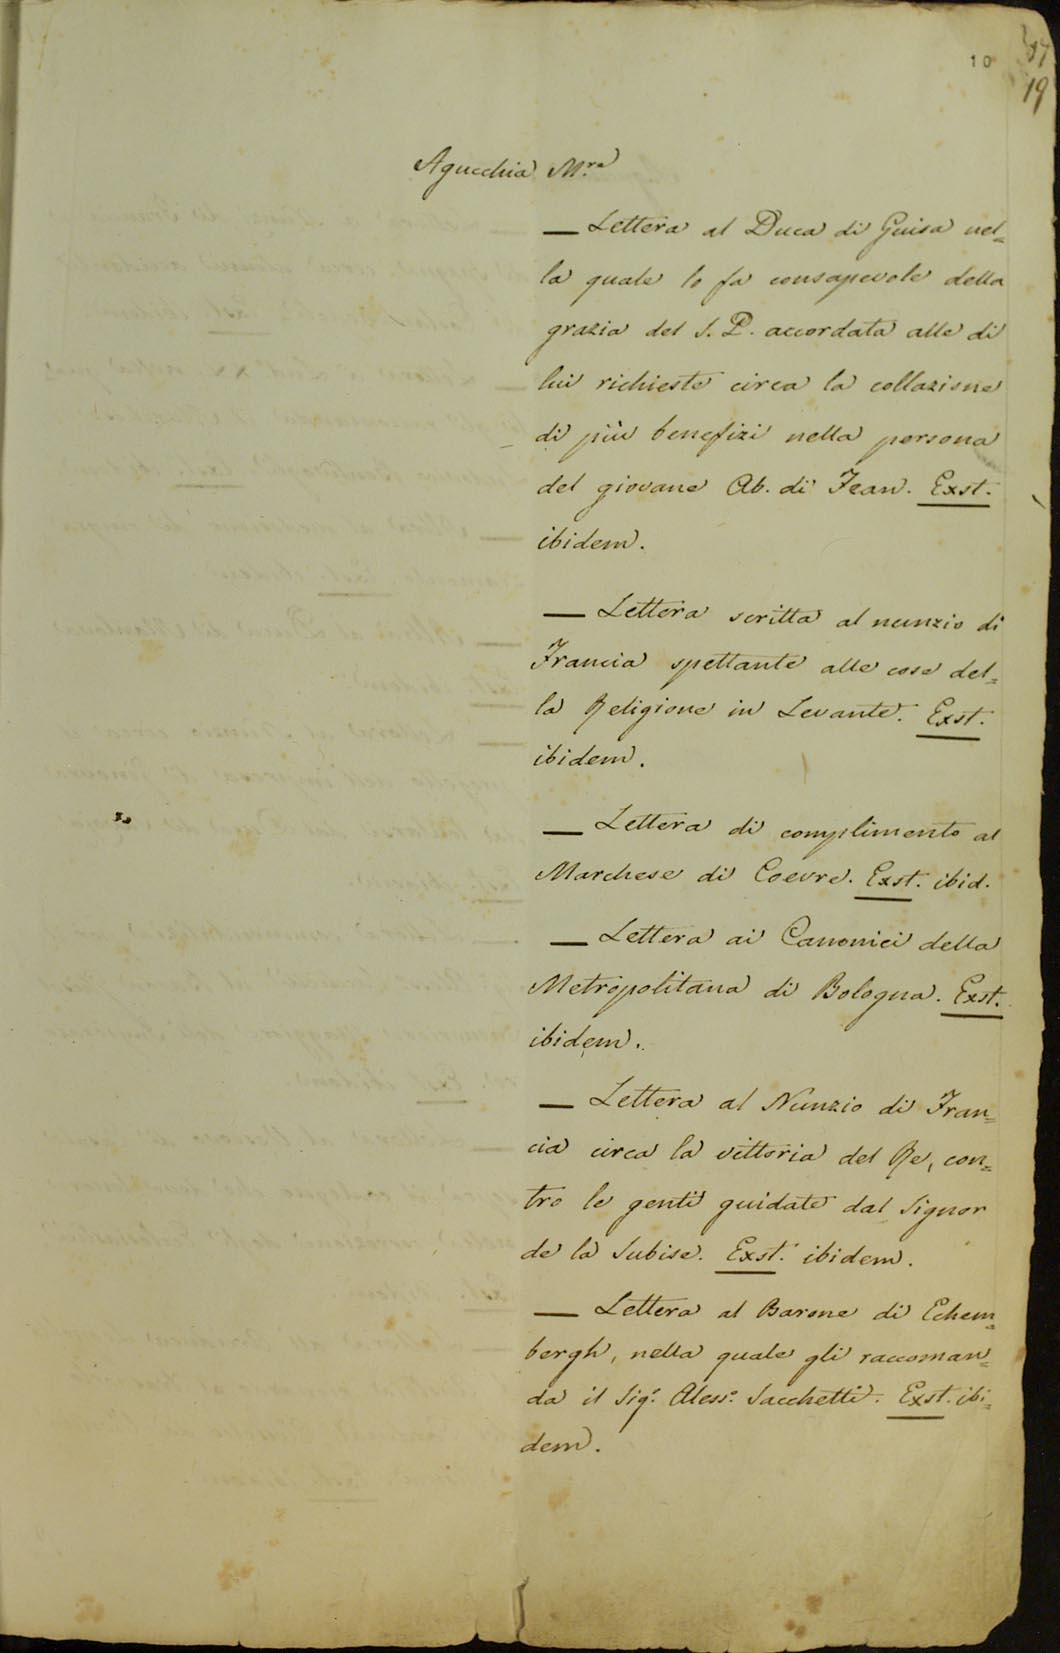 10
17
19
Agucchia M.re
— Lettera al Duca di Guisa nel=
la quale lo fa consapevole della
grazia del S. P. accordata alle di
lui richieste circa la collazione
di più benefizi nella persona
del giovane Ab. di Jean. Exst.
ibidem.
— Lettera scritta al nunzio di
Francia spettante alle cose del=
la Religione in Levante. Exst.
ibidem.
— Lettera di complimento al
Marchese di Coevre. Exst. ibid.
— Lettera ai Canonici della
Metropolitana di Bologna. Exst.
ibidem.
— Lettera al Nunzio di Fran=
cia circa la vittoria del Re, con=
tro le genti guidate dal Signor
de la Subise. Exst. ibidem.
— Lettera al Barone di Echem=
bergh, nella quale gli raccoman=
da il Sig.r Aless.o Sacchetti. Exst. ibi=
dem.